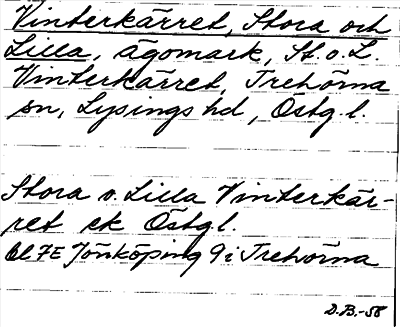 Vinterkärret, Stora och
Lilla, ägomark, St. o. L.
Vinterkärret, Trehörna
sn, Lysings hd, Östg. l.
Stora o. Lilla Vinterkär-
ret ek Östgl.
bl 7E Jönköping 9 i Trehörna
D.B.-58